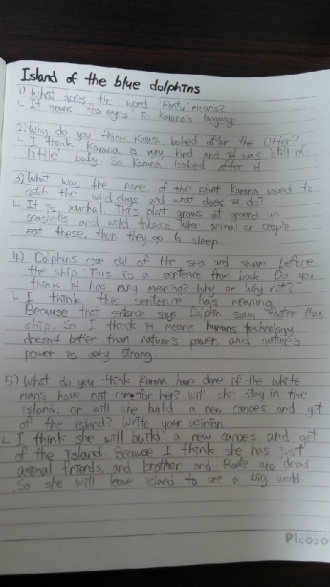 Island of the blue dolphins
1) What does the word means?
L It means "sea eyes" in karana's language.
2) Why do you think Karana looked after the Otter?
L I think karana is very kind and it was still a
little baby so karana looked after it
3) What was the name of the plant karana used to
catch the wild dogs and what does it do?
L It is xuchal. This plant grows at ground up
seashells and wild tobacco. When animal or people
eat these, then they go to sleep.
4) Dolphins rose out of the sea and swam before
the ship. This is a sentence than book. Do you
think it has many meaning? Why or Why not?
L I think this sentence has meaning.
Because that sentence says Dolphin swam faster than
ship. So I think it means humans technology
doesn't better than nature's power, and nature's
power is very strong.
5) What do you think karana have done if the white
mans have not come for her? Will she stay in the
island, or will she build a new canoes and get
of the island? Write your opinion.
L I think she will build a new canoes and get
of the Island Because I think she has just
animal friends, and brother and are dead
So she will leave island to see a big world
Picozo